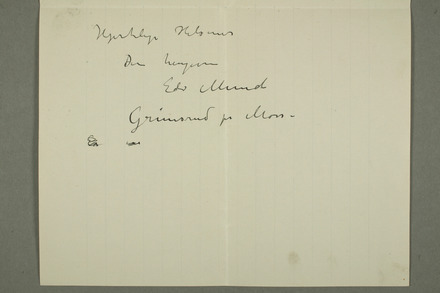 Hjertelige Hilsener
Din hengivne
Edv Munch
Grimsrud pr Moss-